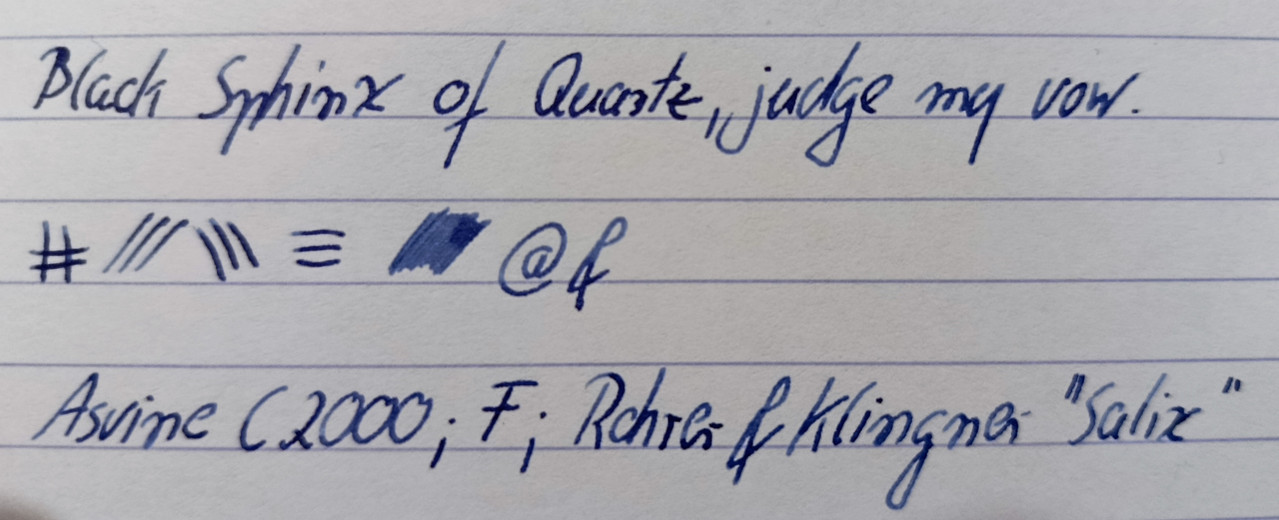 Black Sphinx of Quartz, judge my vow.
# /// \\\ ≡ @ &
Asvine C2000; F; Rohrer & Klingner "Salix"